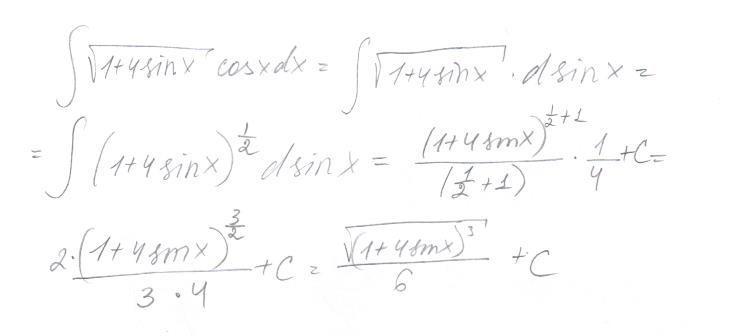 ∫√(1+4sinx) cosxdx = ∫√(1+4sinx) · dsinx =
= ∫(1+4sinx)^(1/2) dsinx = (1+4sinx)^(1/2+1) / (1/2+1) · 1/4 + C =
2·(1+4sinx)^(3/2) / 3·4 + C = √(1+4sinx)^3 / 6 + C